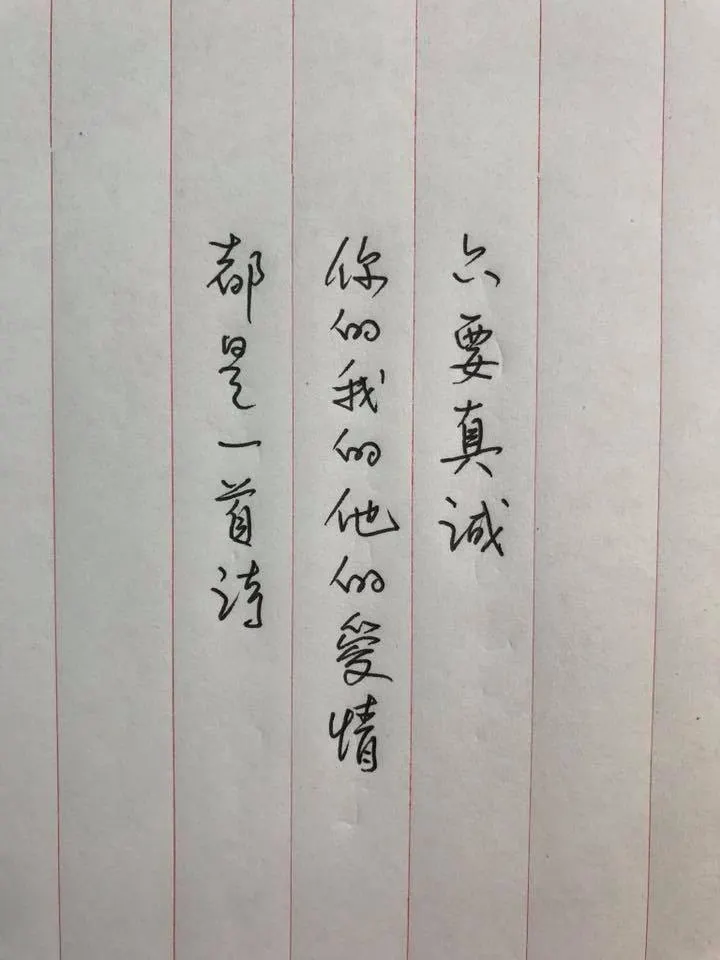 只要真诚
你的我的他的爱情
都是一首诗